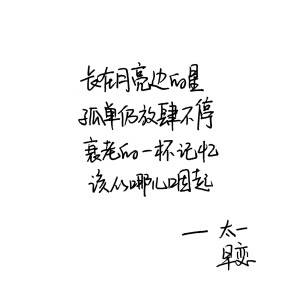 长在月亮边的星
孤单仍放肆不停
衰老的一杯记忆
该从哪儿咽起
— 太一
早恋